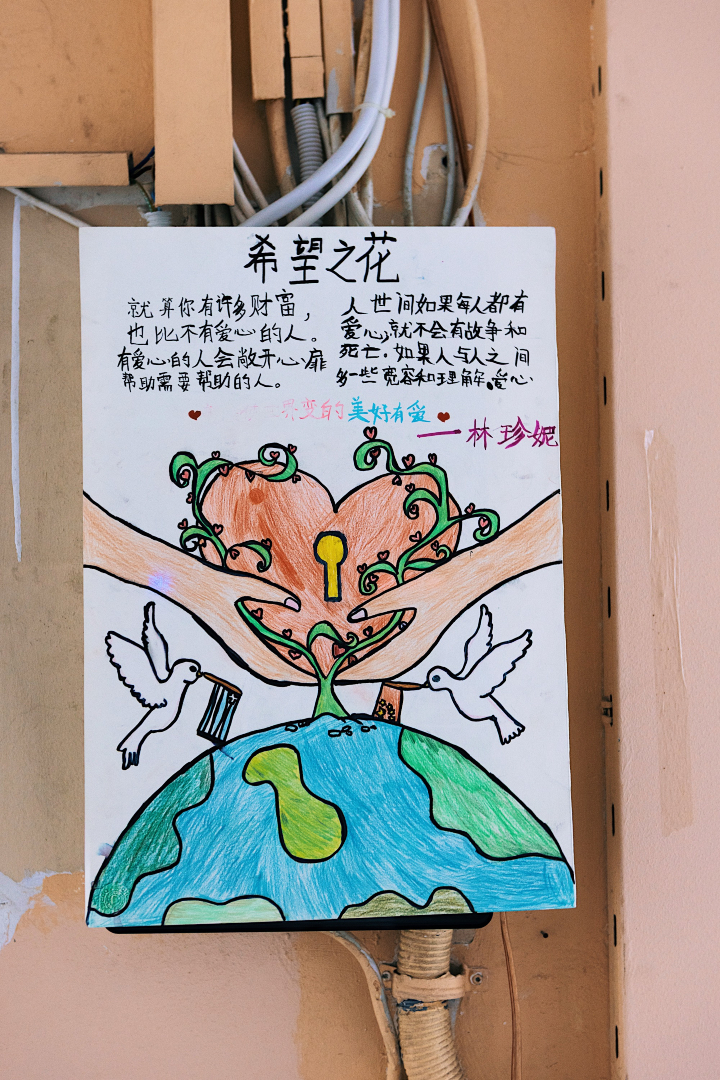 希望之花
就算你有许多财富，
也比不有爱心的人。
有爱心的人会敞开心扉
帮助需要帮助的人。
人世间如果每人都有
爱心，就不会有故争和
死亡．如果人与人之间
多一些宽容和理解，爱心
界变的美好有爱
一林珍妮